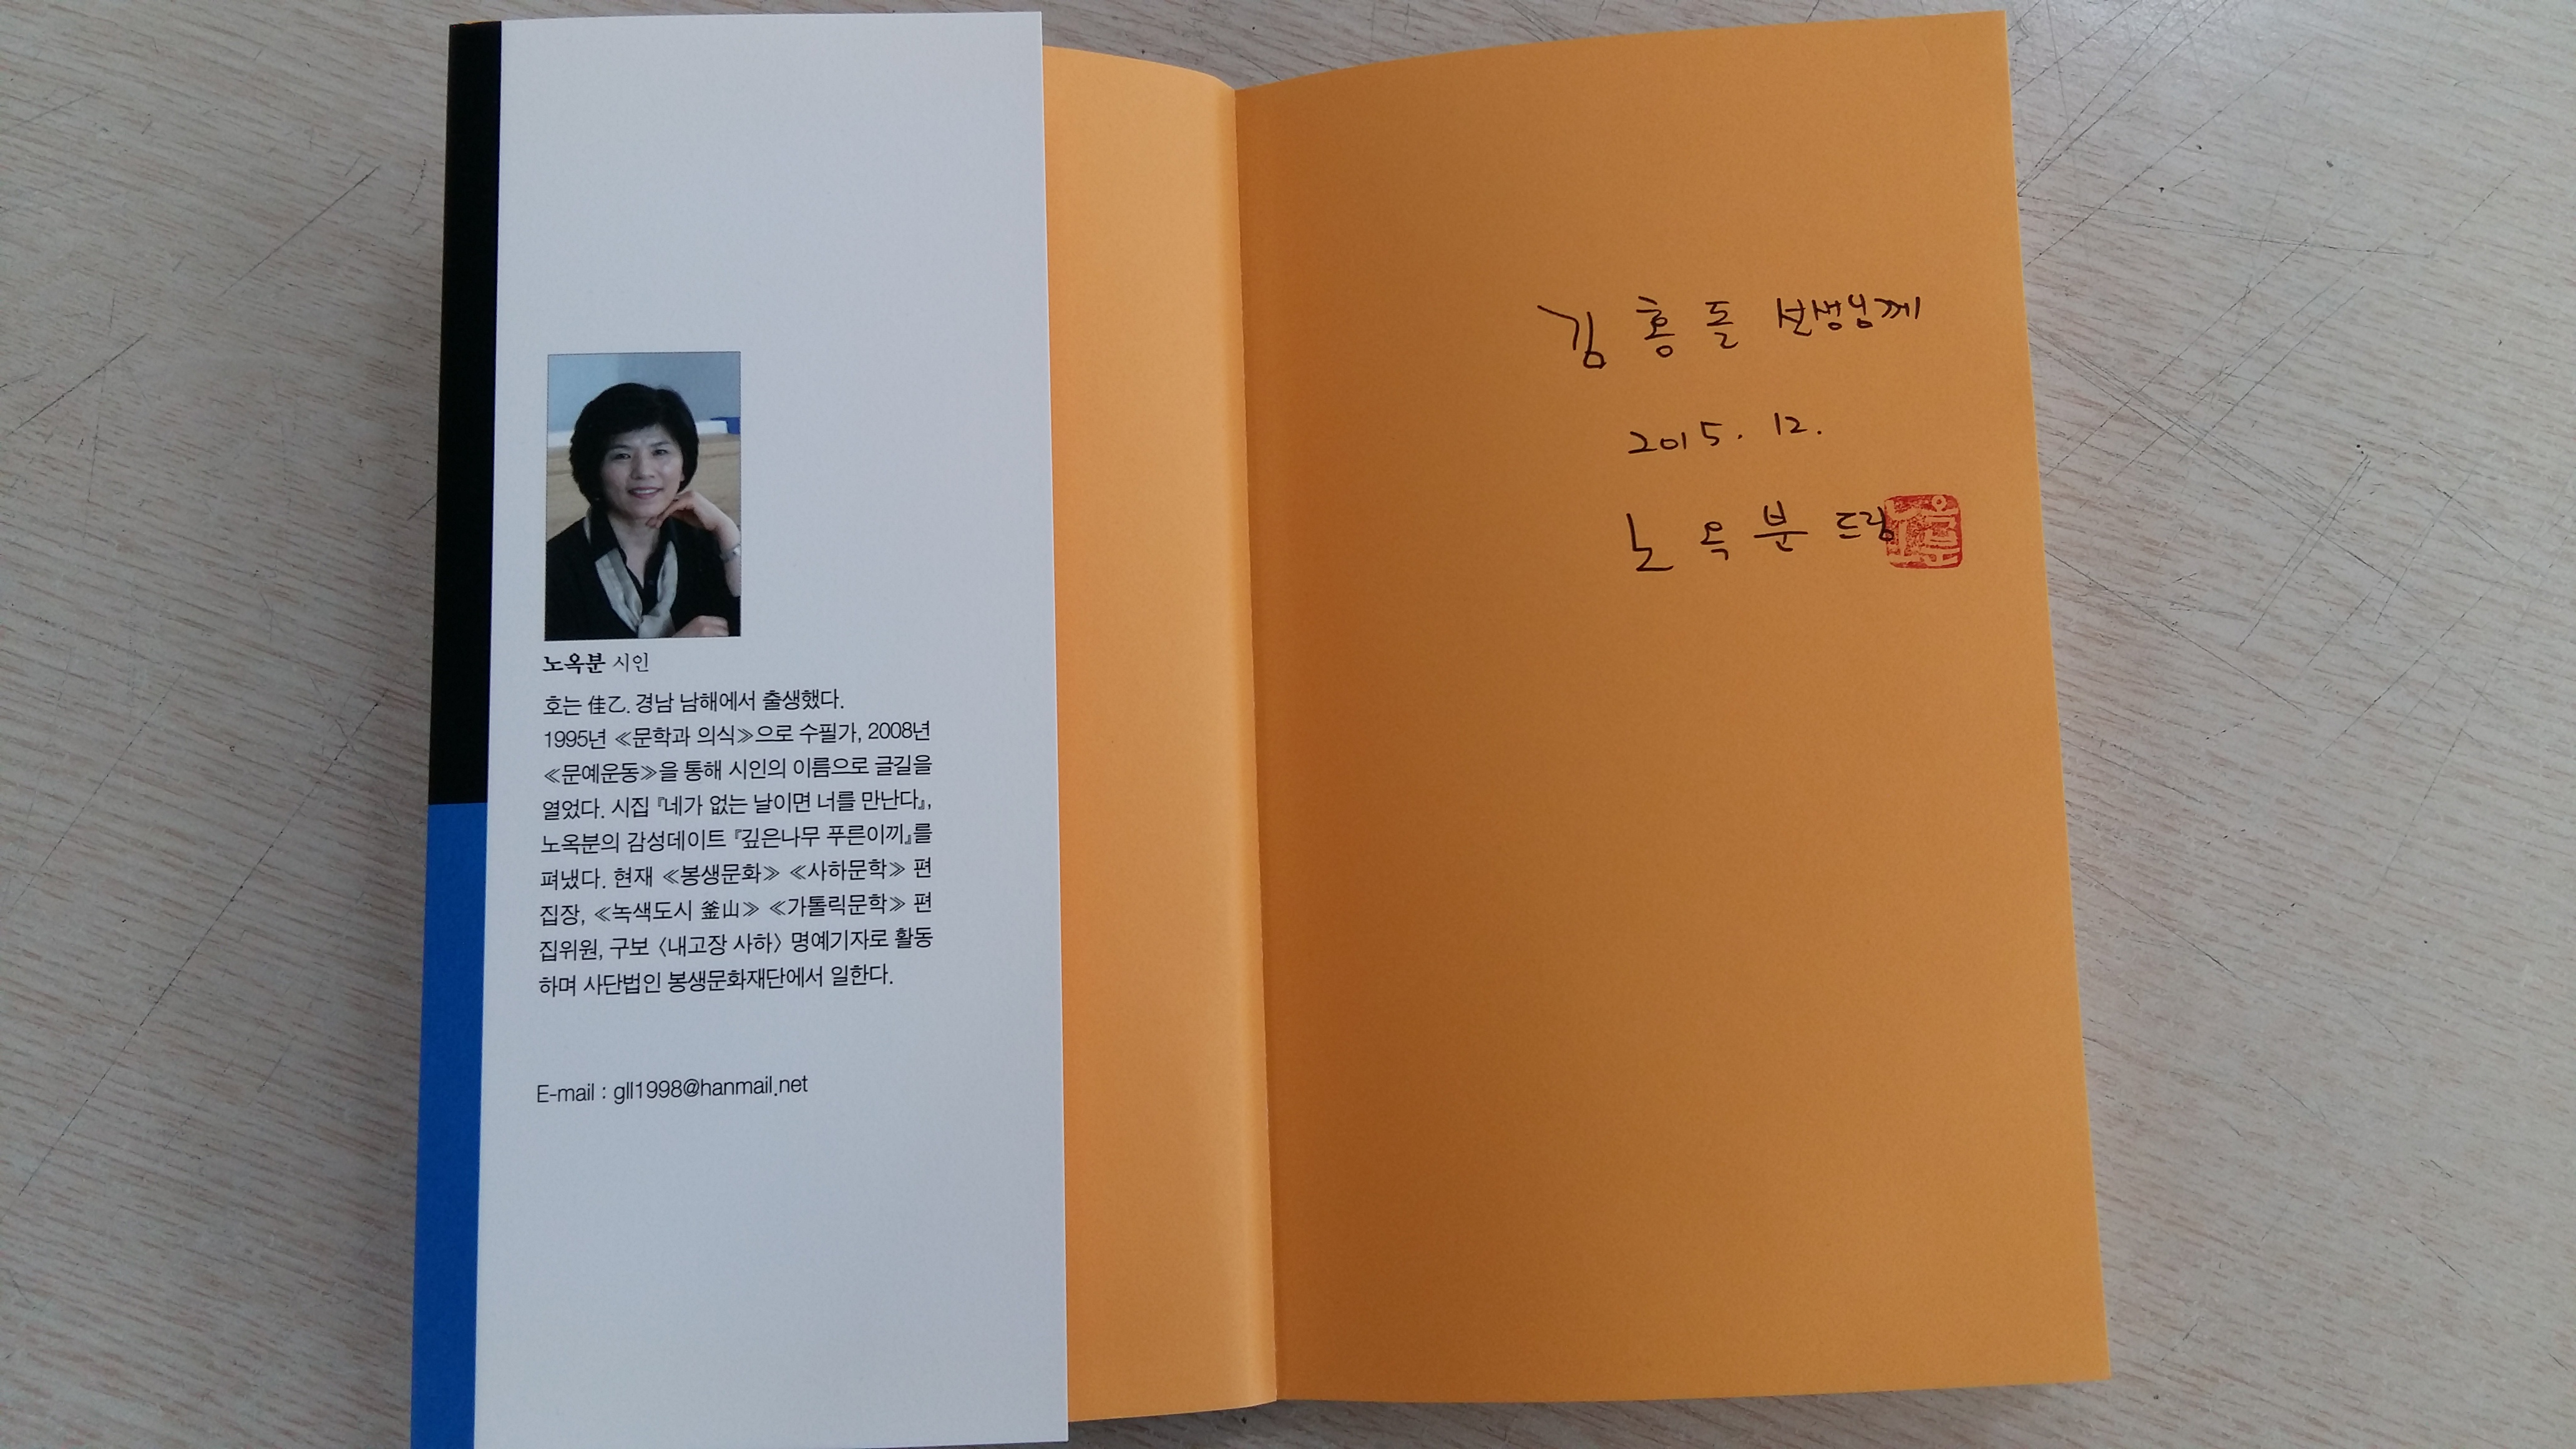 노옥분 시인
호는 佳乙. 경남 남해에서 출생했다.
1995년 ≪문학과 의식≫으로 수필가, 2008년
≪문예운동≫을 통해 시인의 이름으로 글길을
열었다. 시집 『네가 없는 날이면 너를 만난다』,
노옥분의 감성데이트 『깊은나무 푸른이끼』를
펴냈다. 현재 ≪봉생문화≫ ≪사하문학≫ 편
집장, ≪녹색도시 釜山≫ ≪가톨릭문학≫ 편
집위원, 구보 〈내고장 사하〉 명예기자로 활동
하며 사단법인 봉생문화재단에서 일한다.
E-mail : gll1998@hanmail.net
김 홍 돌 선생님께
2015. 12.
노 옥 분 드림